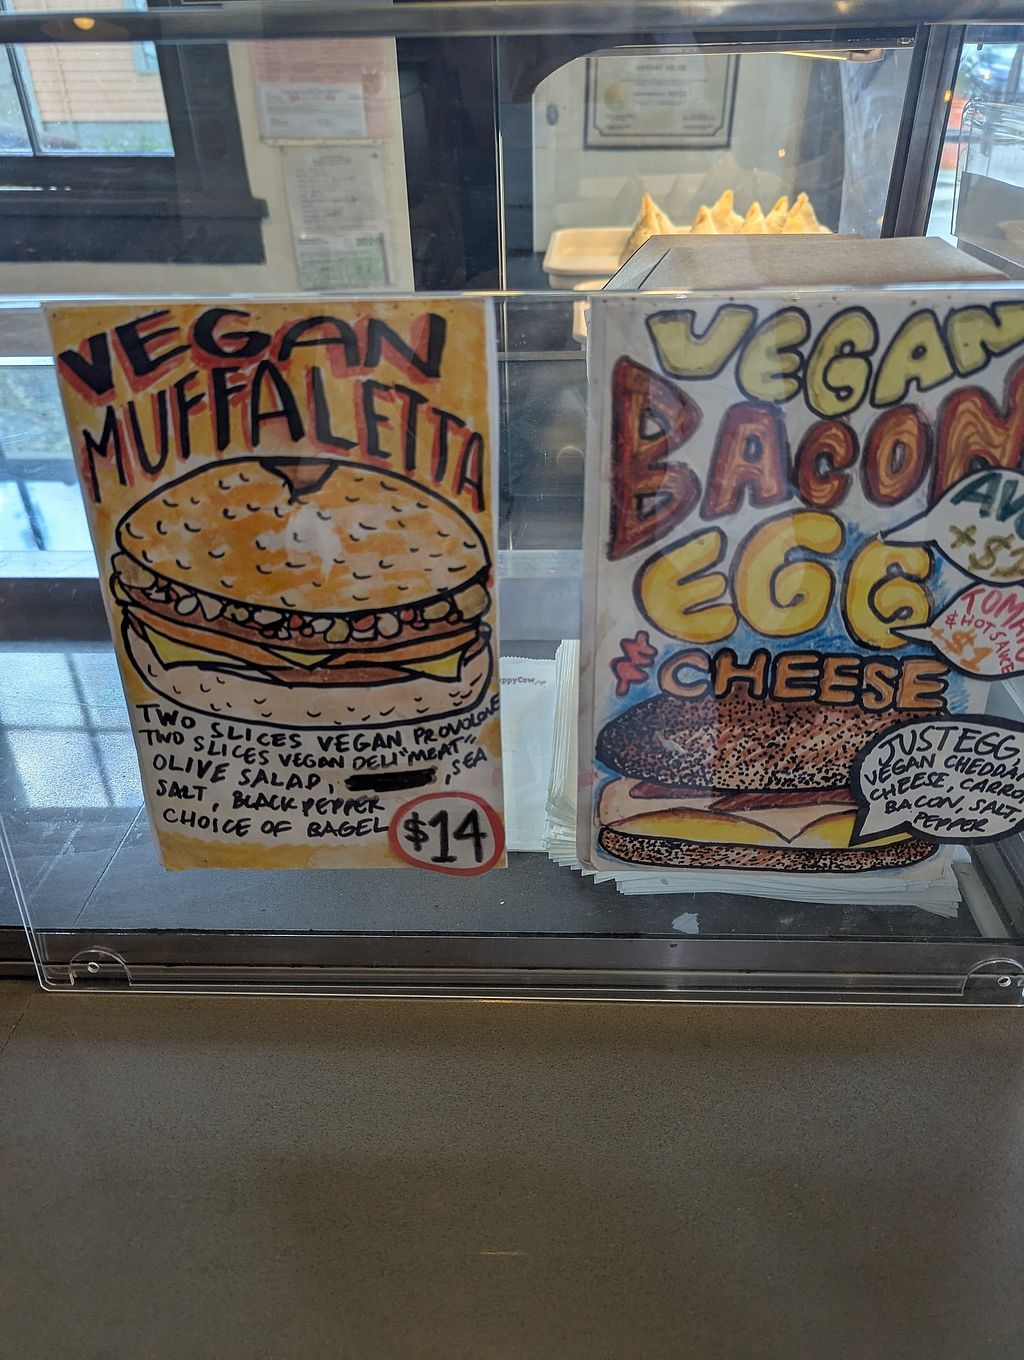 VEGAN
MUFFALETTA
TWO SLICES VEGAN PROVOLONE
TWO SLICES VEGAN DELI "MEAT",
OLIVE SALAD, , SEA
SALT, BLACK PEPPER
CHOICE OF BAGEL
$14
VEGAN
BACON
EGG
& CHEESE
+ $
& HOT SAUCE
$1
JUST EGG,
VEGAN CHEDDAR
CHEESE, CARRO
BACON, SALT,
PEPPER
ppyCow